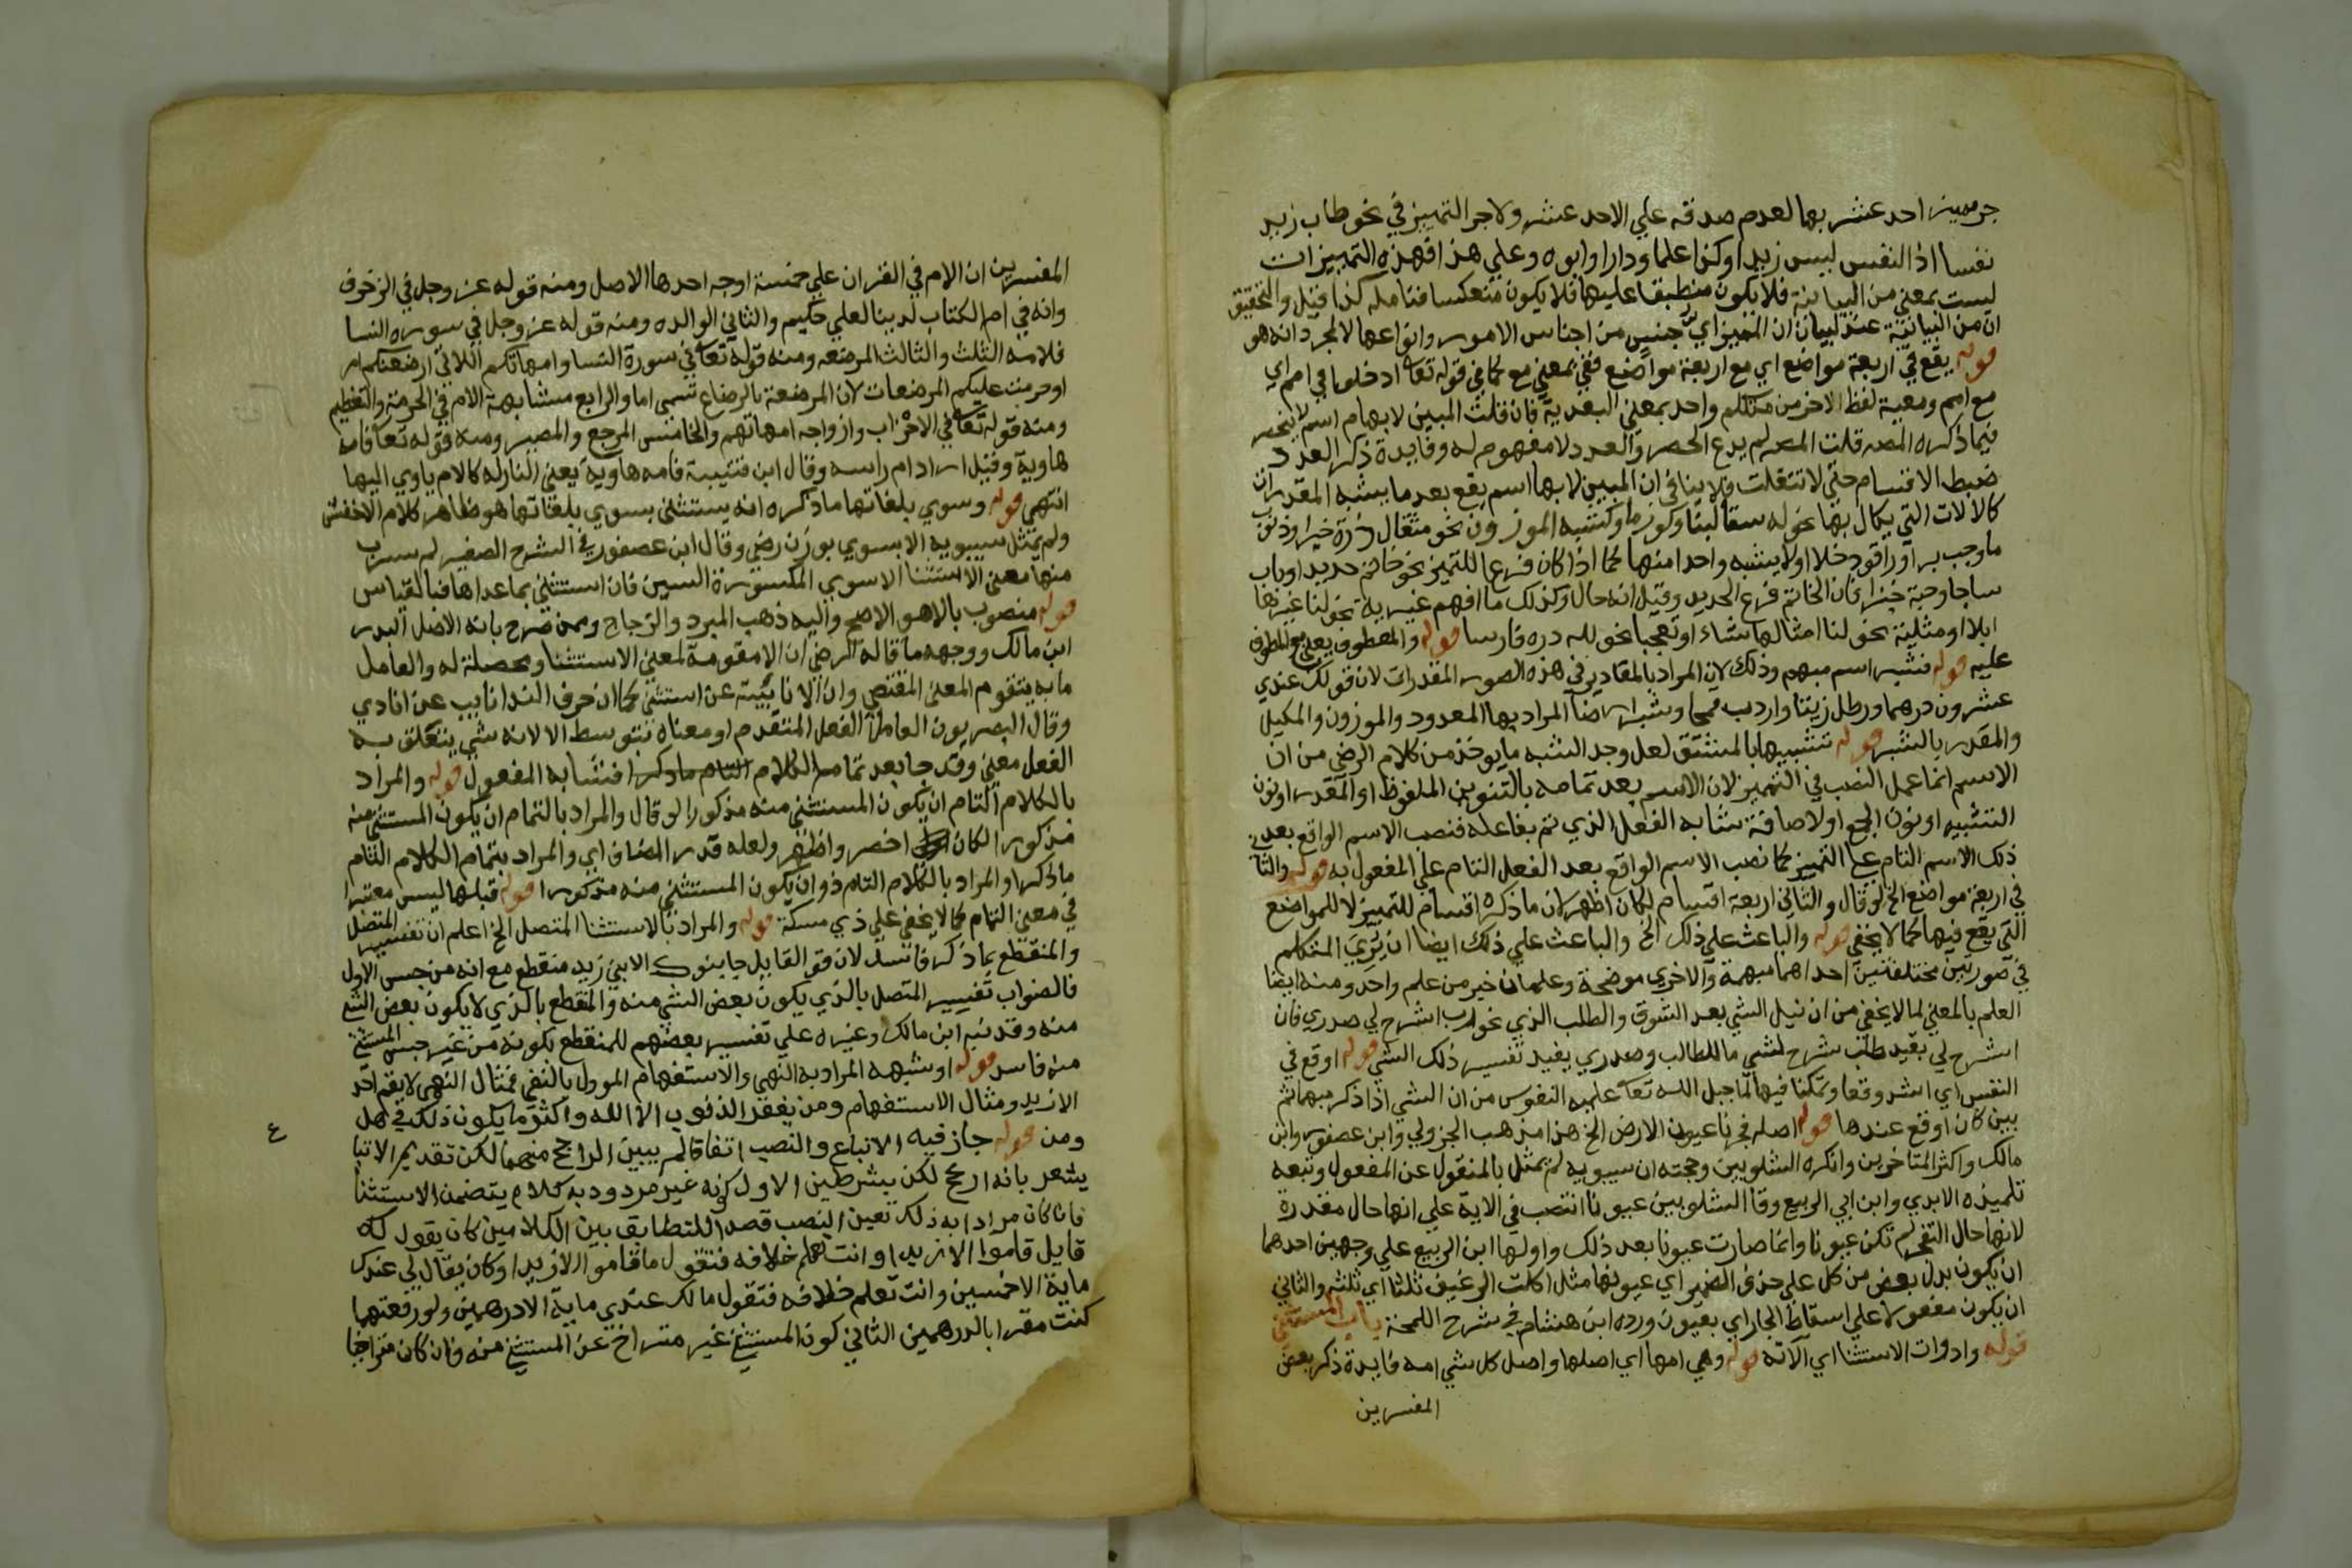 جر مميز احد عشر بهما لعدم صدقه علي الاحد عشر ولا جر التمييز في نحو طاب زيد
نفسا اذ النفس ليس زيدا وكذا علما ودارا وابوه وعلي هذا فهذه التمييزات
ليست بمعني من البيانية فلا يكون منطبقا عليها فلا يكون منعكسا فتامله كذا قيل والتحقيق
ان من البيانية عند لبيان ان المميز اي جنس من اجناس الامور وانواعها لا لمجرد انه هو
قوله يقع في اربعة مواضع اي مع اربعة مواضع ففي بمعني مع كما في قوله تعا ادخلوا في امم اي
مع امم ومعية لفظ الاخر من متكلم واحد بمعني البعدية فان قلت المبين لابهام اسم لا ينحصر
فيما ذكره المصـ قلت المصـ لم يدع الحصر والعدد لا مفهوم له وفايدة ذكر العدد
ضبط الاقسام حتي لا تنفلت فلا ينافي ان المبين لابهام اسم يقع بعد ما يشبه المقدران
كالالات التي يكال بها نحو له سقا لبنا وكوز ما وكشبه الموزون نحو مثقال ذرة خيرا وذنوب
ما وجب بر اوراقود خلا او لا يشبه واحدا منها كما اذا كان فرعا للتمييز نحو خاتم حديدا وباب
ساجا وجبة خزا فان الخاتم فرع الحديد وقيل انه حال وكذلك ما افهم غيرية نحو لنا غيرها
ابلا او مثلية نحو لنا امثالها شاء او تعجبا نحو لله دره فارسا قوله والمعطوف يعني مع المعطوف
عليه قوله فشبر اسم مبهم وذلك لان المراد بالمقادير في هذه الصور المقدرات لان قولك عندي
عشرون درهما ورطل زيتا واردب قمحا وشبر ارضا المراد بها المعدود والموزون والمكيل
والمقدر بالشبر قوله تشبيها بالمشتق لعل وجه الشبه ما يوخذ من كلام الرضي من ان
الاسم انما عمل النصب في التمييز لان الاسم بعد تمامه بالتنوين الملفوظ او المقدر او نون
التشبيه او نون الجمع اولاضافة شابه الفعل الذي تم بفاعله فنصب الاسم الواقع بعد
ذلك الاسم التام علي التمييز كما نصب الاسم الواقع بعد الفعل التام علي المفعول به قوله والثا
في اربعة مواضع الخ لو قال والثاني اربعة اقسام لكان اظهر لان ما ذكره اقسام للتمييز لا للمواضع
التي يقع فيها كما لا يخفي قوله والباعث علي ذلك الخ والباعث علي ذلك ايضا ان يري المتكلم
في صورتين مختلفتين احداهما مبهمة والاخري موضحة وعلمان خير من علم واحد ومنه ايضا
العلم بالمعني لما لا يخفي من ان نيل الشي بعد الشوق والطلب الذي نحو رب اشرح لي صدري فان
اشرح لي يفيد طلب شرح لشي ما للطالب وصدري يفيد تفسير ذلك الشي قوله اوقع في
النفس اي اشد وقعا وتمكنا فيها لما جبل الله تعا عليه النفوس من ان الشي اذا ذكر مبهما ثم
بين كان اوقع عندها قوله اصله فجرنا عيون الارض الخ هذا مذهب الجزولي وابن عصفور وابن
مالك واكثر المتاخرين وانكره الشلوبين وحجته ان سيبويه لم يمثل بالمنقول عن المفعول وتبعه
تلميذه الابدي وابن ابي الربيع وقا الشلوبين عيونا انتصب في الاية علي انها حال مقدرة
لانها حال التفجر لم تكن عيونا وانما صارت عيونا بعد ذلك واولها ابن الربيع علي وجهين احدهما
ان يكون بدل بعض من كل علي حذف الضمير اي عيونها مثل اكلت الرغيف ثلثا اي ثلثه والثاني
ان يكون مفعولا علي اسقاط الجار اي بعيون ورده ابن هشام في شرح اللمحة باب المستثني
قوله وادوات الاستثنا اي الآته قوله وهي امها اي اصلها واصل كل شي امه فايدة ذكر بعض
المفسرين
المفسرين ان الام في القران علي خمسة اوجه احدها الاصل ومنه قوله عز وجل في الزخرف
وانه في ام الكتاب لدينا لعلي حكيم والثاني الوالده ومنه قوله عز وجل في سوره النسا
فلامه الثلث والثالث المرضعه ومنه قوله تعا في سورة النسا وامهاتكم اللاتي ارضعنكم
او حرمت عليكم المرضعات لان المرضعة بالرضاع تسمي اما والرابع مشابهة الام في الحرمة والتعظيم
ومنه قوله تعا في الاحزاب وازواجه امهاتهم والخامس المرجع والمصير ومنه قوله تعا فامه
هاوية وقيل اراد ام راسه وقال ابن قتيبة فامه هاوية يعني النار له كالام ياوي اليها
انتهي قوله وسوي بلغاتها ما ذكره انه يستثني بسوي بلغاتها هو ظاهر كلام الاخفش
ولم يمثل سيبويه الا بسوي بوزن رضي وقال ابن عصفور في الشرح الصغير لم يشرب
منها معني الاستثنا الا سوي المكسورة السين فان استثني بما عداها فبالقياس
قوله منصوب بالا هو الاصح واليه ذهب المبرد والزجاج وممن صرح بانه الاصل البدر
ابن مالك ووجهه ما قاله الرضي ان الا مقومة لمعني الاستثنا ومحصلة له والعامل
ما به يتقوم المعني المقتضي وان الا نايبة عن استثني كما ان حرف الندا نايب عن انادي
وقال البصريون العامل الفعل المتقدم او معناه بتوسط الا لانه شي يتعلق به
الفعل معني وقد جا بعد تمام الكلام فشابه المفعول قوله والمراد
بالكلام التام ان يكون المستثني منه مذكورا لو قال والمراد بالتمام ان يكون المستثني منه
مذكورا لكان اخصر واظهر ولعله قدر المضاف اي والمراد بتمام الكلام التام
ما ذكر او المراد بالكلام التام ذو ان يكون المستثني منه مذكورا قوله قبلها ليس معتبرا
في معني التمام كما لا يخفي علي ذي مسكة قوله والمراد بالاستثنا المتصل الخ اعلم ان تفسير المتصل
والمنقطع بما ذكر فاسد لان قو القايل جا بنوك الا ابن زيد منقطع مع انه من جنس الاول
فالصواب تفسير المتصل بالذي يكون بعض الشي منه والمنقطع بالذي لا يكون بعض الشي
منه وقد نبه ابن مالك وغيره علي تفسير بعضهم للمنقطع بكونه من غير جنس المستثني
منه فاسد قوله او شبهه المراد به النهي والاستفهام المؤول بالنفي فمثال النهي لا يقم احد
الا زيد ومثال الاستفهام ومن يغفر الذنوب الا الله واكثر ما يكون ذلك في هل
ومن قوله جاز فيه الاتباع والنصب اتفاقا لم يبين الراجح منهما لكن تقديم الاتبا
يشعر بانه ارجح لكن بشرطين الاول كونه غير مردود به كلام يتضمن الاستثنا
فان كان مرادا به ذلك تعين النصب قصد اللتطابق بين الكلامين كان يقول لك
قايل قاموا الا زيدا وانت تعلم خلافه فتقول ما قاموا الا زيدا وكان يقال لي عندك
ماية الا خمسين وانت تعلم خلافه فتقول مالك عندي ماية الا درهمين ولو رفعتهما
كنت مقرا بالدرهمين الثاني كون المستثني غير متراخ عن المستثني منه وان كان متراخيا
ع